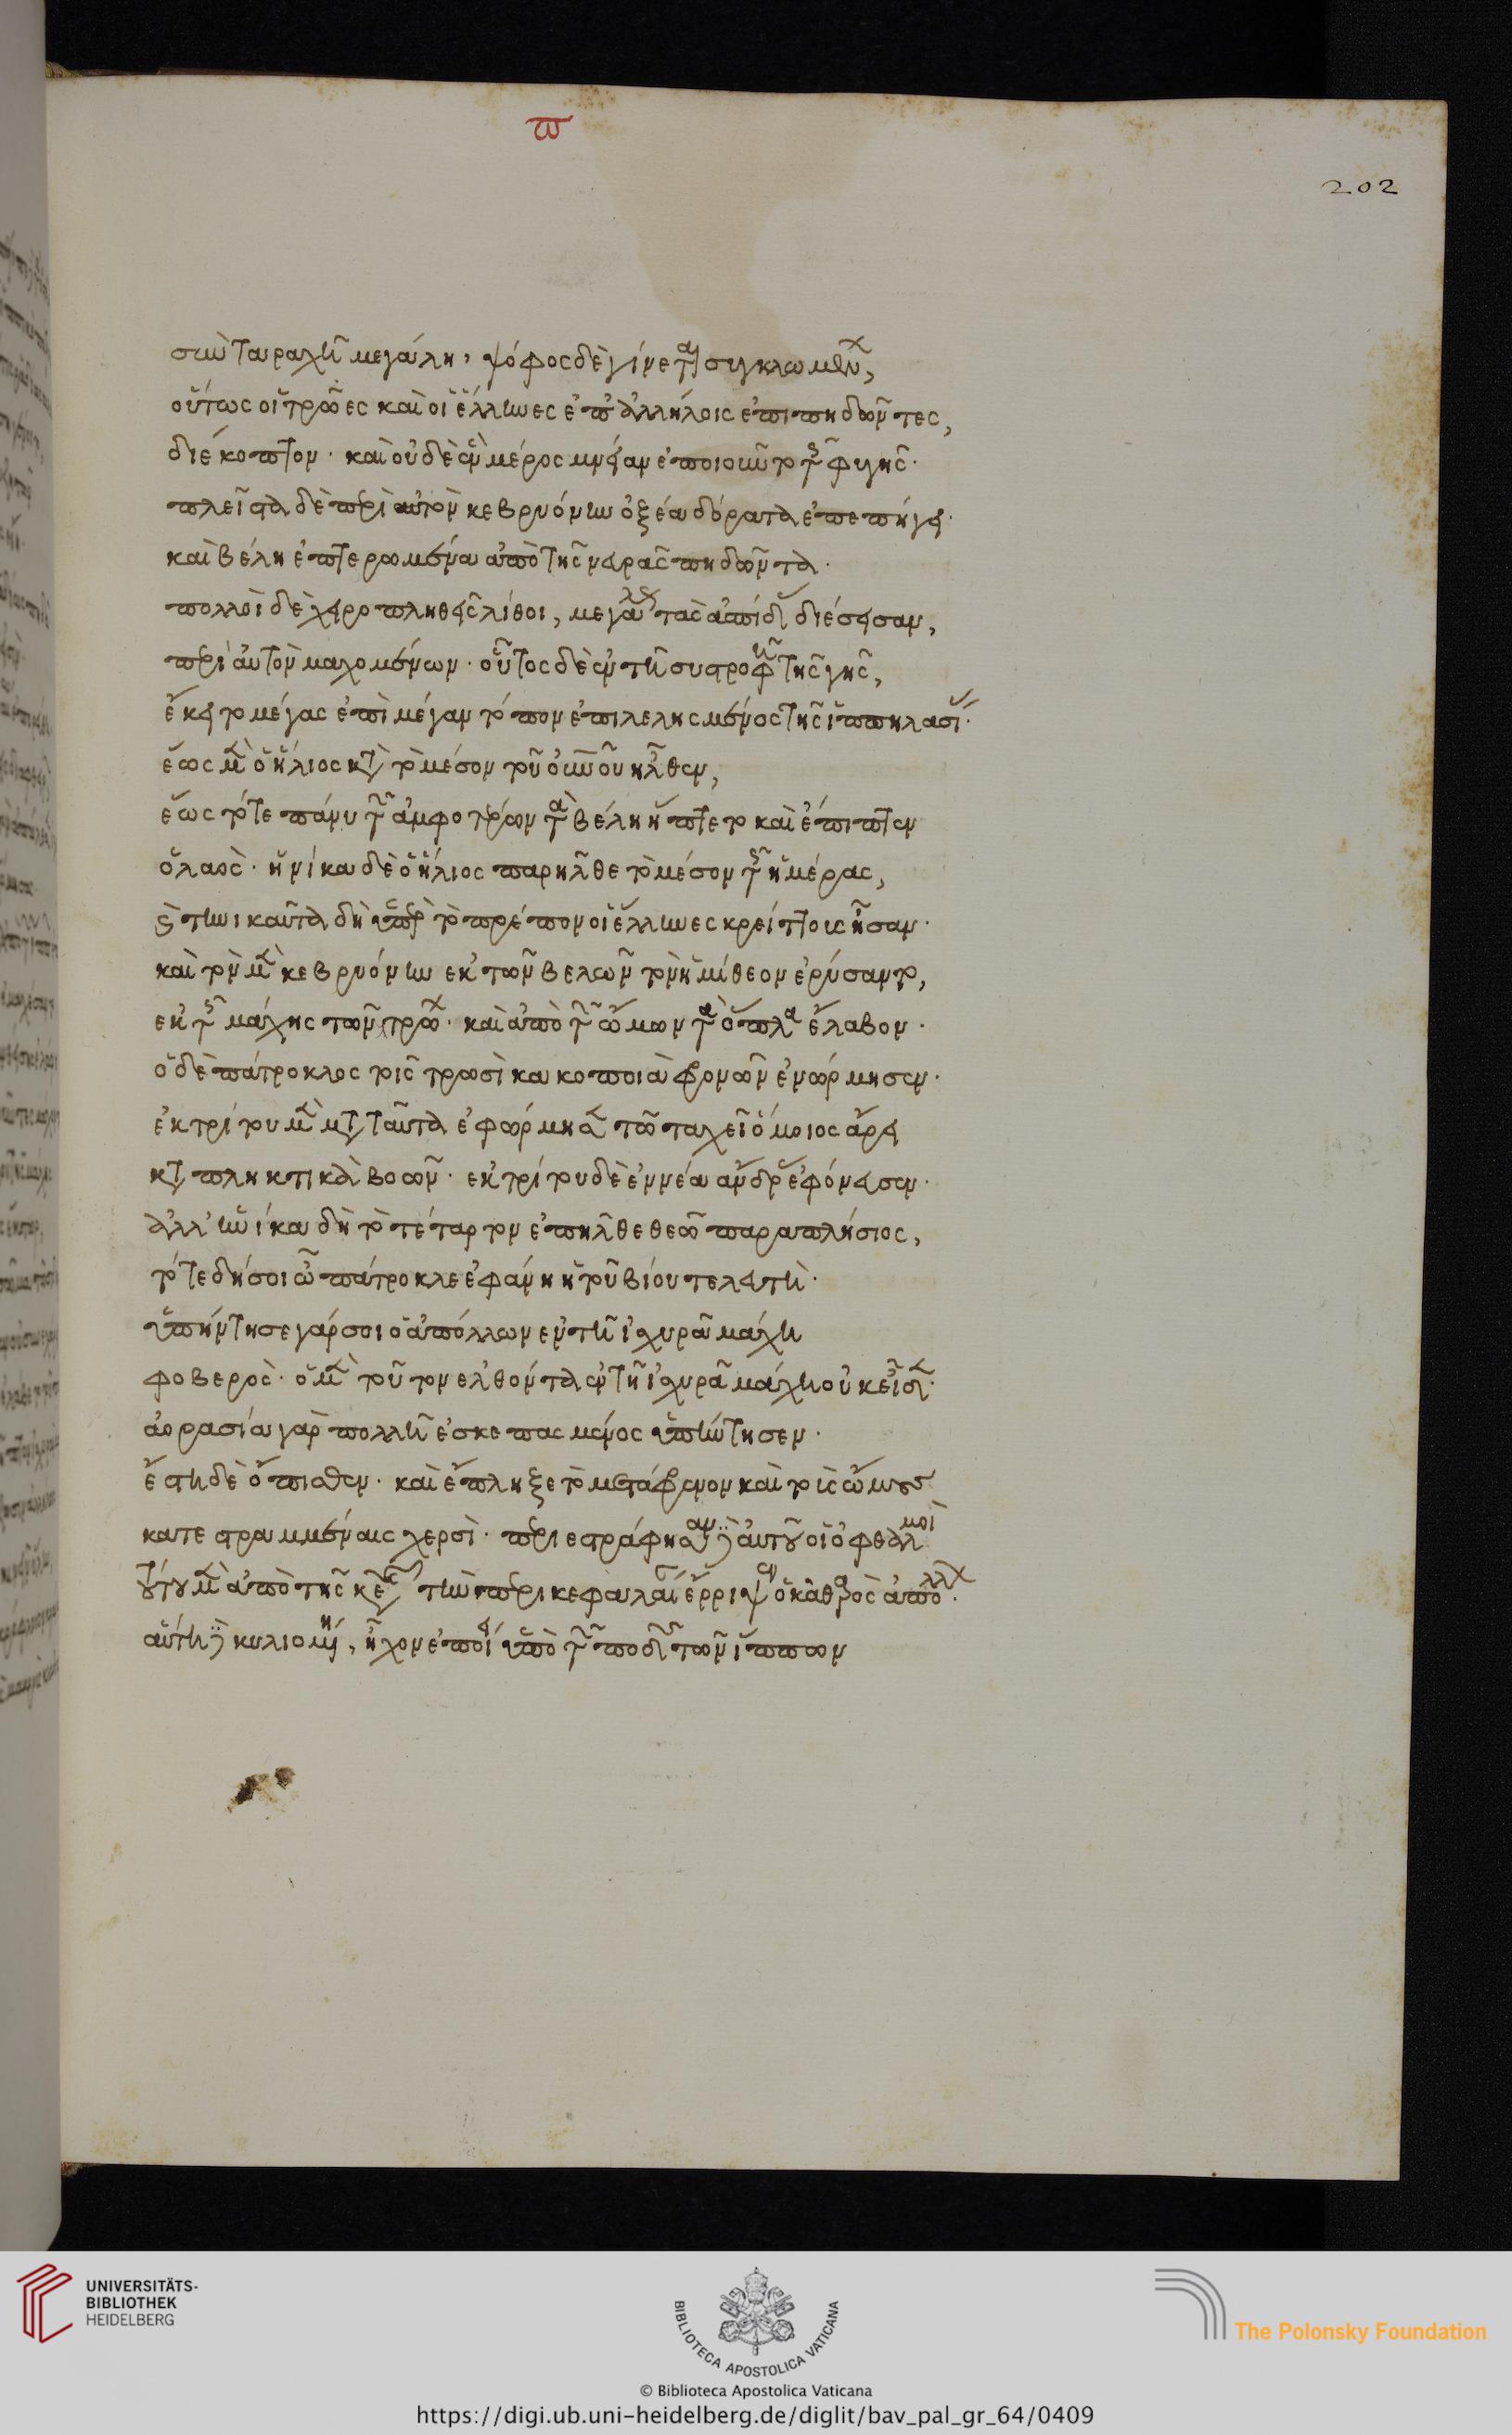 π
202
σὺν ταραχῆ μεγάλη, ψόφος δὲ γίνεται συγκλωμένων,
οὕτως οἱ τρῶες καὶ οἱ ἕλληνες ἐπ' ἀλλήλοις ἐπιπηδῶντες,
διέκοπτον· καὶ οὐδὲ ἓν μέρος μνείαν ἐποιοῦντο τῆς φυγῆς·
πλεῖστα δὲ περὶ αὐτὸν κεβρυόνην ὀξέα δόρατα ἐπεπήγει·
καὶ βέλη ἐπτερωμένα ἀπὸ τῆς νευρᾶς πηδῶντα·
πολλοὶ δὲ χειροπληθεῖς λίθοι, μεγάλας τὰς ἀσπίδας διέσεισαν,
περὶ αὐτὸν μαχομένων· οὗτος δὲ ἐν τῆ συστροφῆ τῆς γῆς,
ἔκειτο μέγας ἐπὶ μέγαν τόπον ἐπιλελησμένος τῆς ἱππηλασίας·
ἕως μὲν ὁ ἥλιος κατὰ τὸ μέσον τοῦ οὐρανοῦ ἦλθεν,
ἕως τότε πάνυ τῶν ἀμφοτέρων τὰ βέλη ἥπτετο καὶ ἔπιπτεν
ὁ λαός· ἡνίκα δὲ ὁ ἥλιος παρῆλθε τὸ μέσον τῆς ἡμέρας,
καὶ τηνικαῦτα δὴ ὑπὲρ τὸ πρέπον οἱ ἕλληνες κρείττους ἦσαν·
καὶ τὸν μὲν κεβρυόνην ἐκ τῶν βελῶν τὸν ἡμίθεον ἐρύσαντο,
ἐκ τῆς μάχης τῶν τρώων· καὶ ἀπὸ τῶν ὤμων τὰ ὅπλα ἔλαβον·
ὁ δὲ πάτροκλος τοῖς τρωσὶ κακοποιὰ φρονῶν ἐνώρμησεν·
ἐκ τρίτου μὲν μετὰ ταῦτα ἐφώρμησε τῶ ταχεῖ ὅμοιος ἄρει
καταπληκτικὰ βοῶν· ἐκ τρίτου δὲ ἐννέα ἄνδρας ἐφόνευσεν·
ἀλλ' ἡνίκα δὴ τὸ τέταρτον ἐπῆλθε θεῶ παραπλήσιος,
τότε δή σοι ὦ πάτροκλε ἐφάνη ἡ τοῦ βίου τελευτή·
ὑπήντησε γάρ σοι ὁ ἀπόλλων ἐν τῆ ἰσχυρᾶ μάχη
φοβερός· ὁ μὲν τοῦτον ἐλθόντα ἐν τῆ ἰσχυρᾶ μάχη οὐκ εἶδεν·
ἀορασία γὰρ πολλῆ ἐσκεπασμένος ὑπήντησεν·
ἔστη δὲ ὄπισθεν· καὶ ἔπληξε τὸ μετάφρενον καὶ τοὺς ὤμους
κατεστραμμέναις χερσί· περιεστράφησαν δὲ αὐτοῦ οἱ ὀφθαλμοί
τούτου μὲν ἀπὸ τῆς κεφαλῆς τὴν περικεφαλαίαν ἔρριψεν ὁ καθαρὸς ἀπόλλων·
αὕτη δὲ κυλιομένη, ἦχον ἐποίει ὑπὸ τῶν ποδῶν τῶν ἵππων
UNIVERSITÄTS-
BIBLIOTHEK
HEIDELBERG
BIBLIOTECA APOSTOLICA VATICANA
The Polonsky Foundation
© Biblioteca Apostolica Vaticana
https://digi.ub.uni-heidelberg.de/diglit/bav_pal_gr_64/0409